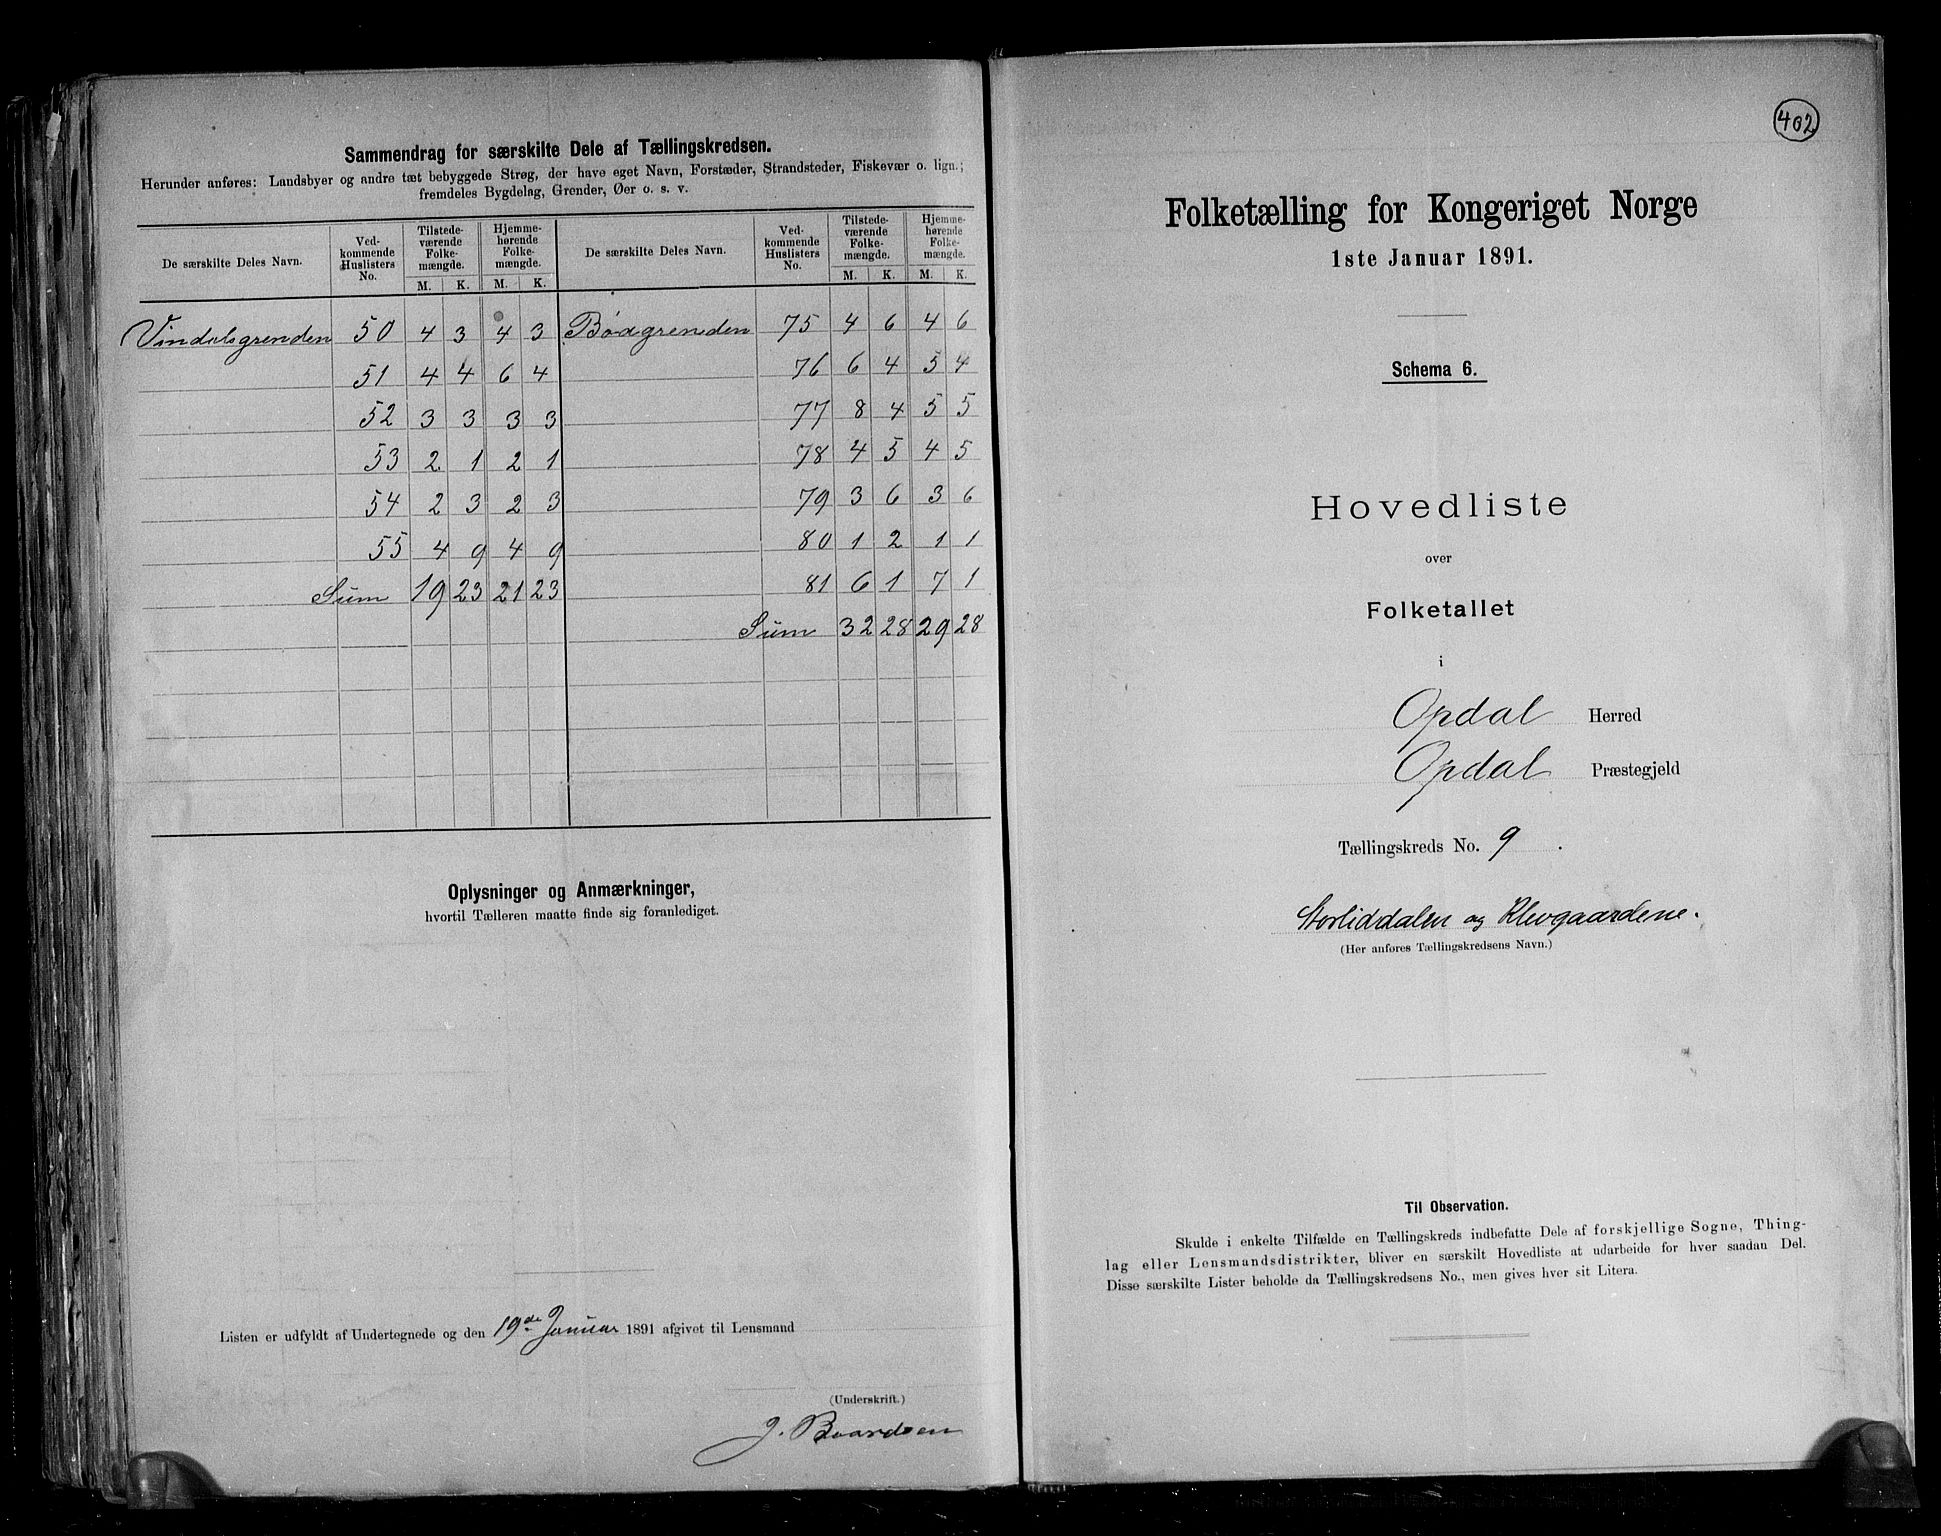 Sammendrag for særskilte Dele af Tællingskredsen.
Herunder anføres: Landsbyer og andre tæt bebyggede Strøg, der have eget Navn, Forstæder, Strandsteder, Fiskevær o. lign.;
fremdeles Bygdelag, Grender, Øer o. s. v.
De særskilte Deles Navn. Ved-kommende Huslisters No. Tilstede-værende Folke-mængde. Hjemme-hørende Folke-mængde. De særskilte Deles Navn. Ved-kommende Huslisters No. Tilstede-værende Folke-mængde. Hjemme-hørende Folke-mængde.
M. K. M. K. M. K. M. K.
Vindalsgrenden 50 4 3 4 3 Bøagrenden 75 4 6 4 6
51 4 4 6 4 76 6 4 5 4
52 3 3 3 3 77 8 4 5 5
53 2 1 2 1 78 4 5 4 5
54 2 3 2 3 79 3 6 3 6
55 4 9 4 9 80 1 2 1 1
Sum 19 23 21 23 81 6 1 7 1
Sum 32 28 29 28
Oplysninger og Anmærkninger,
hvortil Tælleren maatte finde sig foranlediget.
Listen er udfyldt af Undertegnede og den 19de Januar 1891 afgivet til Lensmand
(Underskrift.)
J. Baardsen
402
Folketælling for Kongeriget Norge
1ste Januar 1891.
Schema 6.
Hovedliste
over
Folketallet
i
Opdal Herred
Opdal Præstegjeld
Tællingskreds No. 9.
Storliddalen og Klevgaardene.
(Her anføres Tællingskredsens Navn.)
Til Observation.
Skulde i enkelte Tilfælde en Tællingskreds indbefatte Dele af forskjellige Sogne, Thing-
lag eller Lensmandsdistrikter, bliver en særskilt Hovedliste at udarbeide for hver saadan Del.
Disse særskilte Lister beholde da Tællingskredsens No., men gives hver sit Litera.